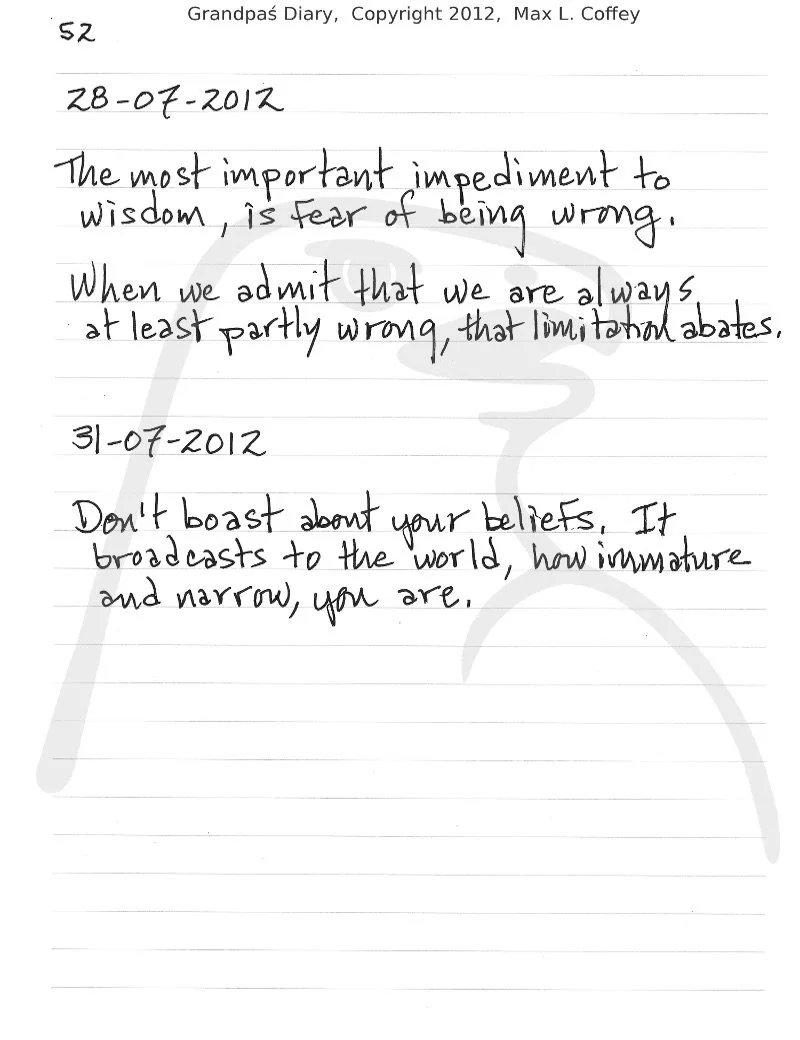 Grandpaś Diary, Copyright 2012, Max L. Coffey
52
28-07-2012
The most important impediment to
wisdom, is fear of being wrong.
When we admit that we are always
at least partly wrong, that limitation abates.
31-07-2012
Don't boast about your beliefs. It
broadcasts to the world, how immature
and narrow, you are.